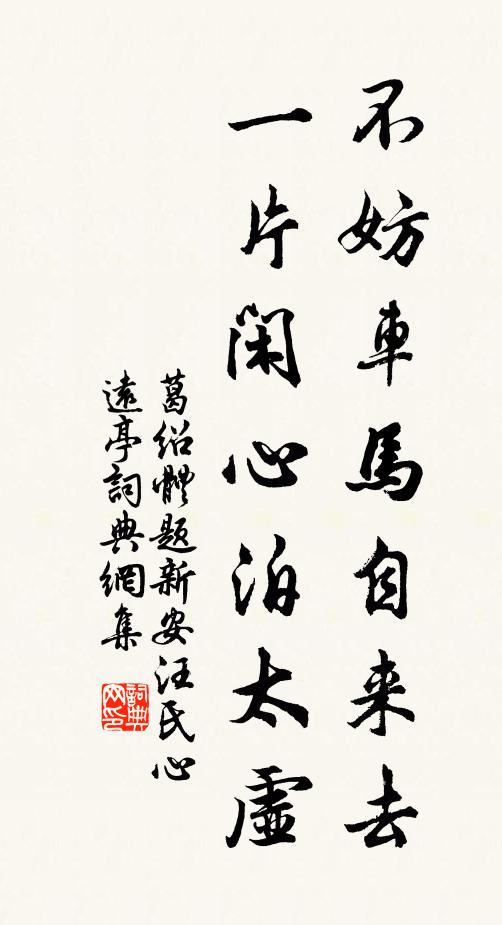 不妨車馬自来去
一片閑心泊太虛
葛紹體題新安汪氏心
遠亭詞典網集
詞典网印